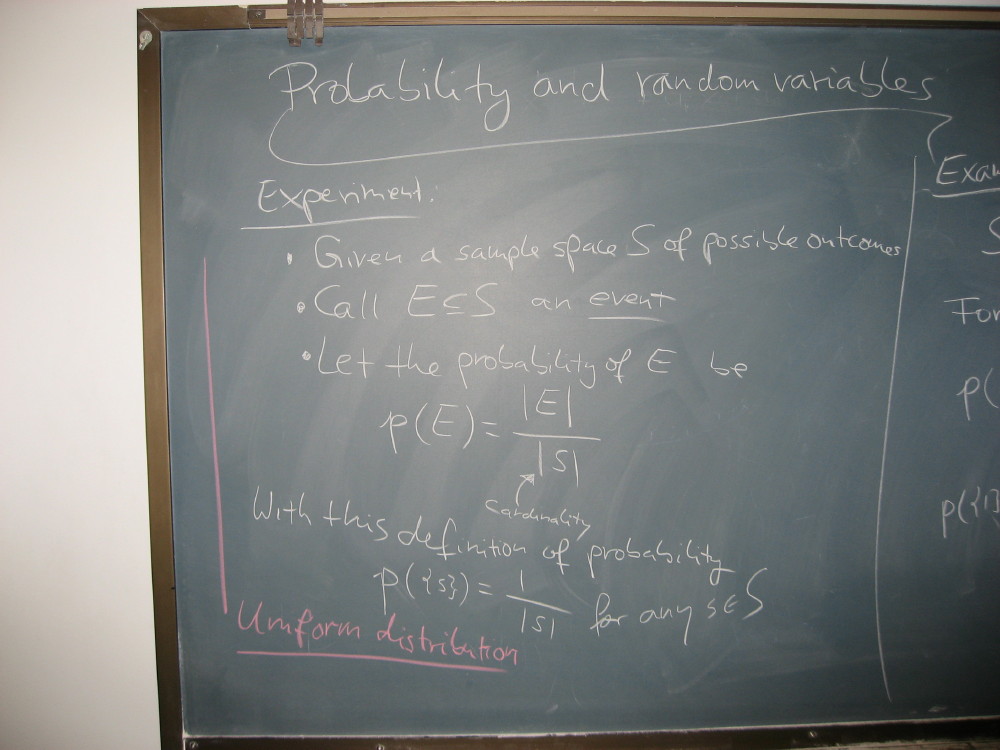 Probability and random variables
Experiment:
• Given a sample space S of possible outcomes
• Call E ⊆ S an event
• Let the probability of E be
p(E) = |E| / |S|
Cardinality
With this definition of probability
p({s}) = 1 / |S| for any s ∈ S
Uniform distribution
Exam
S
For
p(
p({1}